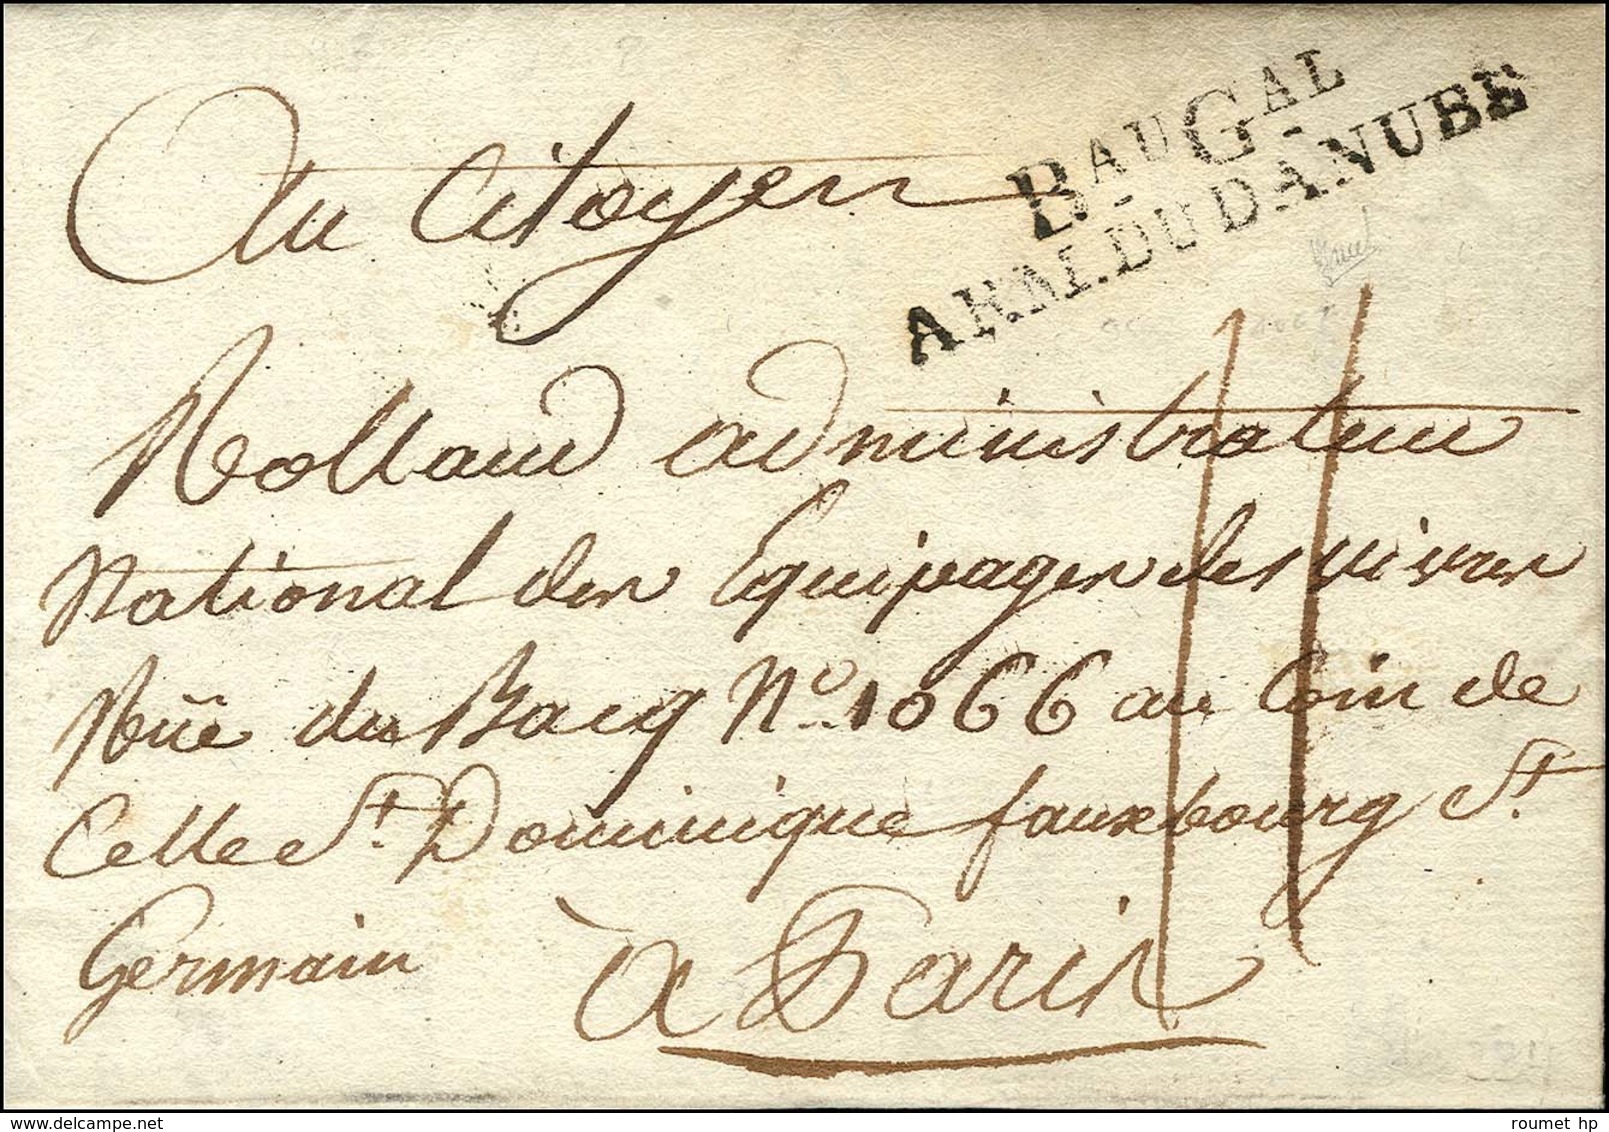 BAU GAL
ARM. DU DANUBE
Au Citoyen
Rolland administrateur
National des Equipages des vivres
Rüe du Bacq N.o 1066 au Coin de
Celle St. Dominique fauxbourg St.
Germain
à Paris
11
delcampe.net
roumet hp